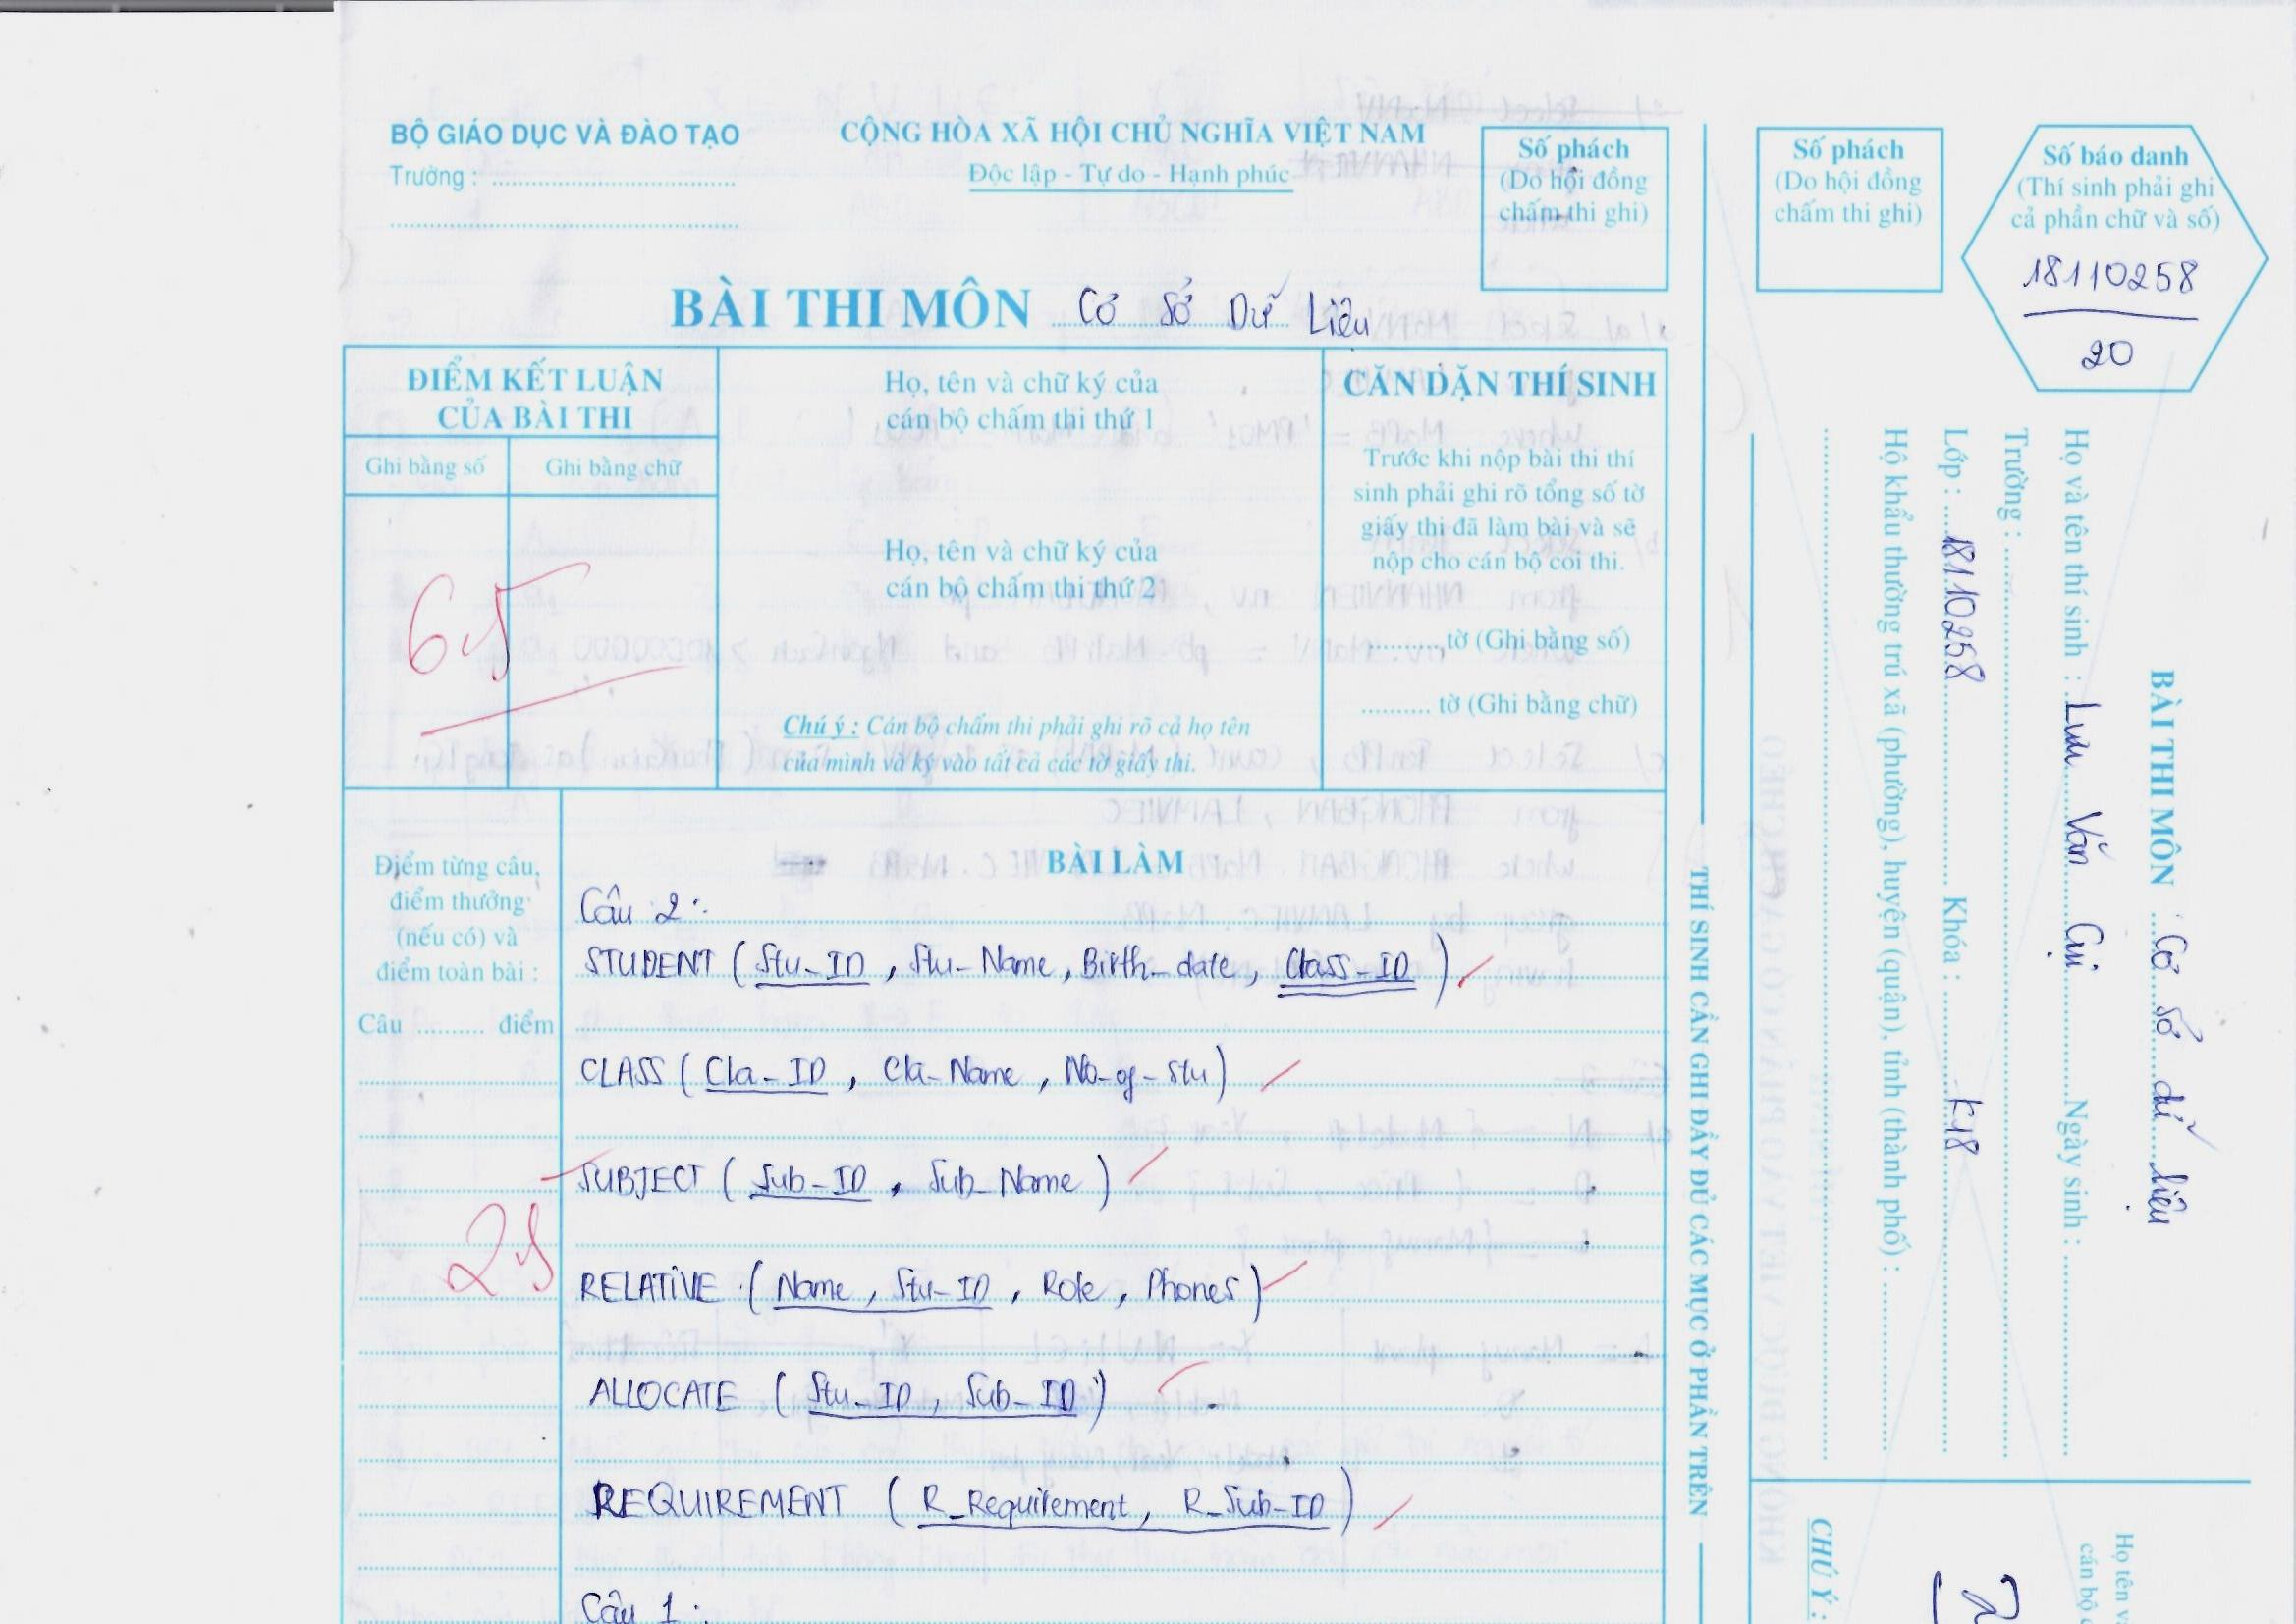 BỘ GIÁO DỤC VÀ ĐÀO TẠO
Trường :
CỘNG HÒA XÃ HỘI CHỦ NGHĨA VIỆT NAM
Độc lập - Tự do - Hạnh phúc
Số phách
(Do hội đồng
chấm thi ghi)
BÀI THI MÔN Cơ Sở Dữ Liệu
ĐIỂM KẾT LUẬN
CỦA BÀI THI
Ghi bằng số
Ghi bằng chữ
6.5
Họ, tên và chữ ký của
cán bộ chấm thi thứ 1
Họ, tên và chữ ký của
cán bộ chấm thi thứ 2
Chú ý : Cán bộ chấm thi phải ghi rõ cả họ tên
của mình và ký vào tất cả các tờ giấy thi.
CĂN DẶN THÍ SINH
Trước khi nộp bài thi thí
sinh phải ghi rõ tổng số tờ
giấy thi đã làm bài và sẽ
nộp cho cán bộ coi thi.
............tờ (Ghi bằng số)
.......... tờ (Ghi bằng chữ)
Điểm từng câu,
điểm thưởng
(nếu có) và
điểm toàn bài :
Câu .......... điểm
2.5
BÀI LÀM
Câu 2:
STUDENT (Stu_ID, Stu_Name, Birth_date, Class_ID)
CLASS (Cla_ID, Cla_Name, No_of_stu)
SUBJECT (Sub_ID, Sub_Name)
RELATIVE (Name, Stu_ID, Role, Phones)
ALLOCATE (Stu_ID, Sub_ID)
REQUIREMENT (R_Requirement, R_Sub_ID)
Câu 1:
THÍ SINH CẦN GHI ĐẦY ĐỦ CÁC MỤC Ở PHẦN TRÊN
Số phách
(Do hội đồng
chấm thi ghi)
Số báo danh
(Thí sinh phải ghi
cả phần chữ và số)
18110258
20
BÀI THI MÔN Cơ sở dữ liệu
Họ và tên thí sinh : Lưu Văn Cụi Ngày sinh :
Trường :
Lớp : 18110258 Khóa : K18
Hộ khẩu thường trú xã (phường), huyện (quận), tỉnh (thành phố) :
CHÚ Ý :